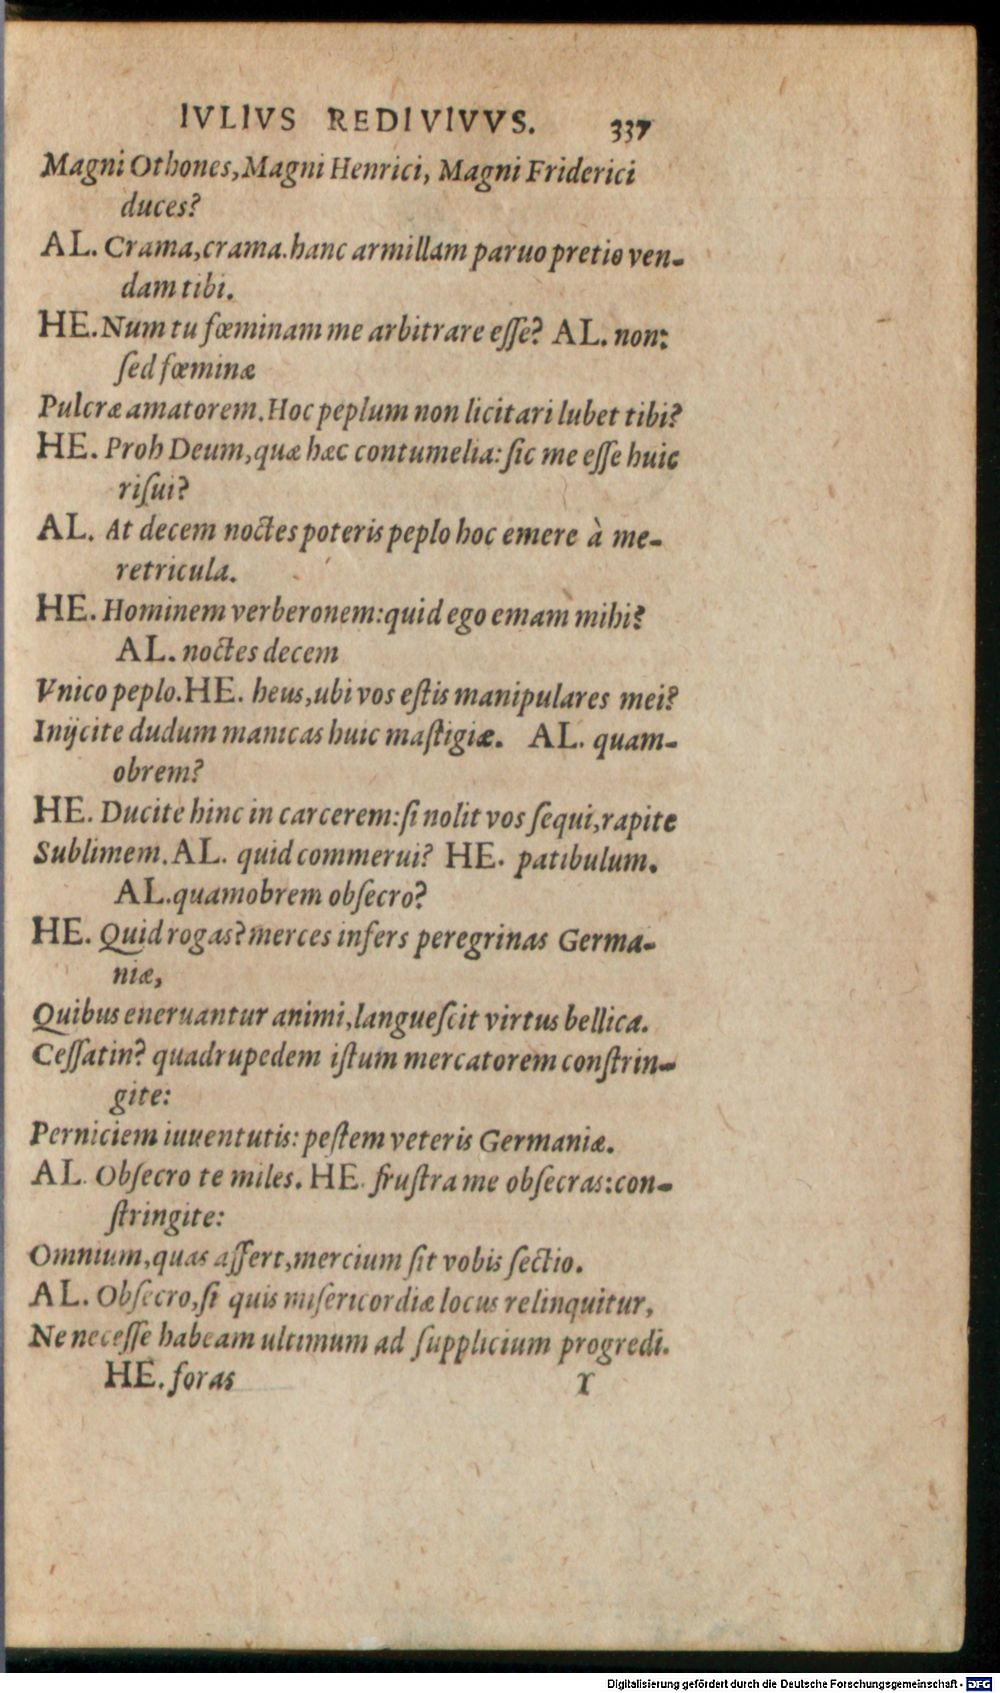 IVLIVS REDIVIVVS. 337
Magni Othones, Magni Henrici, Magni Friderici
duces?
AL. Crama, crama. hanc armillam paruo pretio ven-
dam tibi.
HE. Num tu fœminam me arbitrare eſſe? AL. non:
ſed fœminæ
Pulcræ amatorem. Hoc peplum non licitari lubet tibi?
HE. Proh Deum, quæ hæc contumelia: ſic me eſſe huic
riſui?
AL. At decem noctes poteris peplo hoc emere à me-
retricula.
HE. Hominem verberonem: quid ego emam mihi?
AL. noctes decem
Vnico peplo. HE. heus, ubi vos eſtis manipulares mei?
Inijcite dudum manicas huic maſtigiæ. AL. quam-
obrem?
HE. Ducite hinc in carcerem: ſi nolit vos ſequi, rapite
Sublimem. AL. quid commerui? HE. patibulum.
AL. quamobrem obſecro?
HE. Quid rogas? merces infers peregrinas Germa-
niæ,
Quibus eneruantur animi, langueſcit virtus bellica.
Ceſſatin? quadrupedem iſtum mercatorem conſtrin-
gite:
Perniciem iuuentutis: peſtem veteris Germaniæ.
AL. Obſecro te miles. HE. fruſtra me obſecras: con-
ſtringite:
Omnium, quas affert, mercium ſit vobis ſectio.
AL. Obſecro, ſi quis miſericordiæ locus relinquitur,
Ne neceſſe habeam ultimum ad ſupplicium progredi.
HE. foras Y
Digitalisierung gefördert durch die Deutsche Forschungsgemeinschaft - DFG